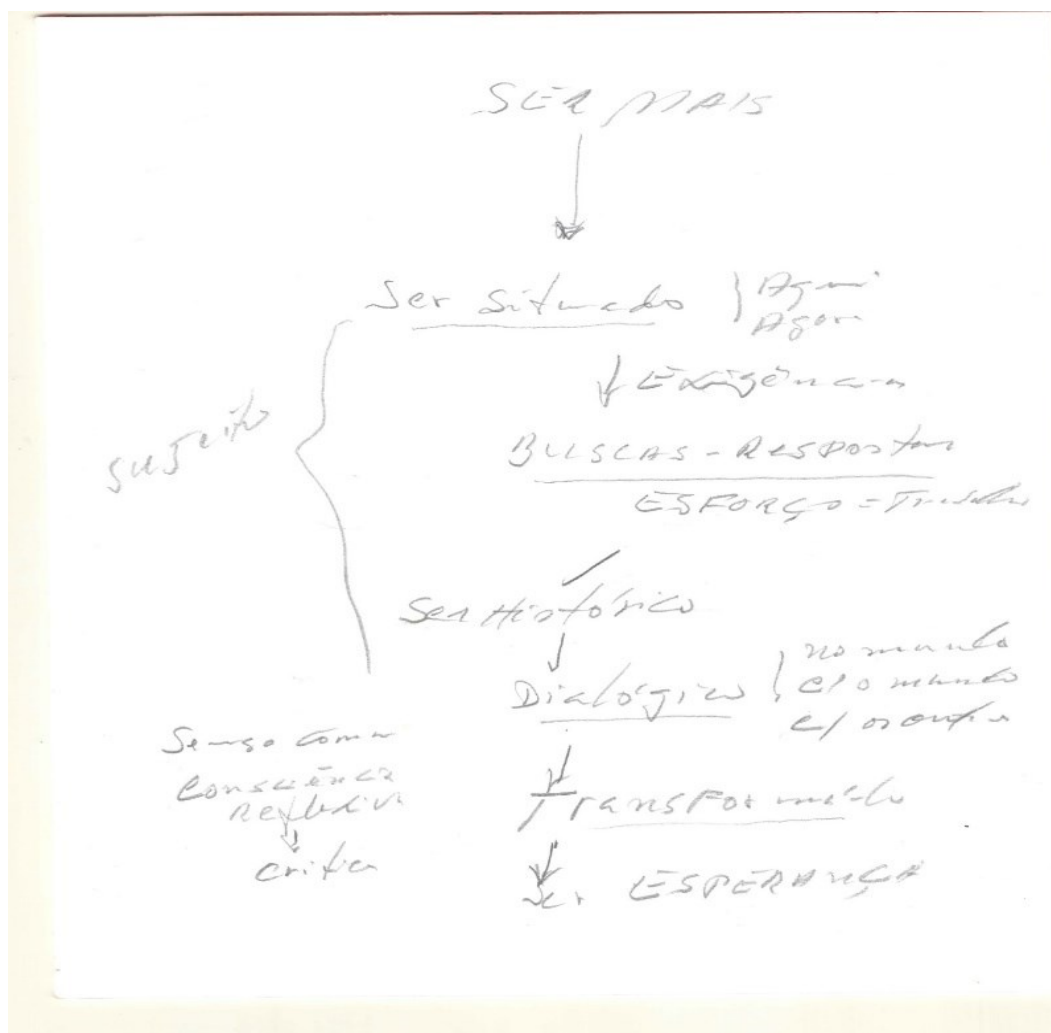 SER MAIS
Ser Situado } Aqui
Agora
Exigências
sujeito
BUSCAS - RESPOSTAS
ESFORÇO = Trabalho
Ser Histórico
Dialógico } no mundo
c/ o mundo
c/ os outros
Senso comum
Consciência
Reflexiva
crítica
Transformá-lo
Ser ESPERANÇA